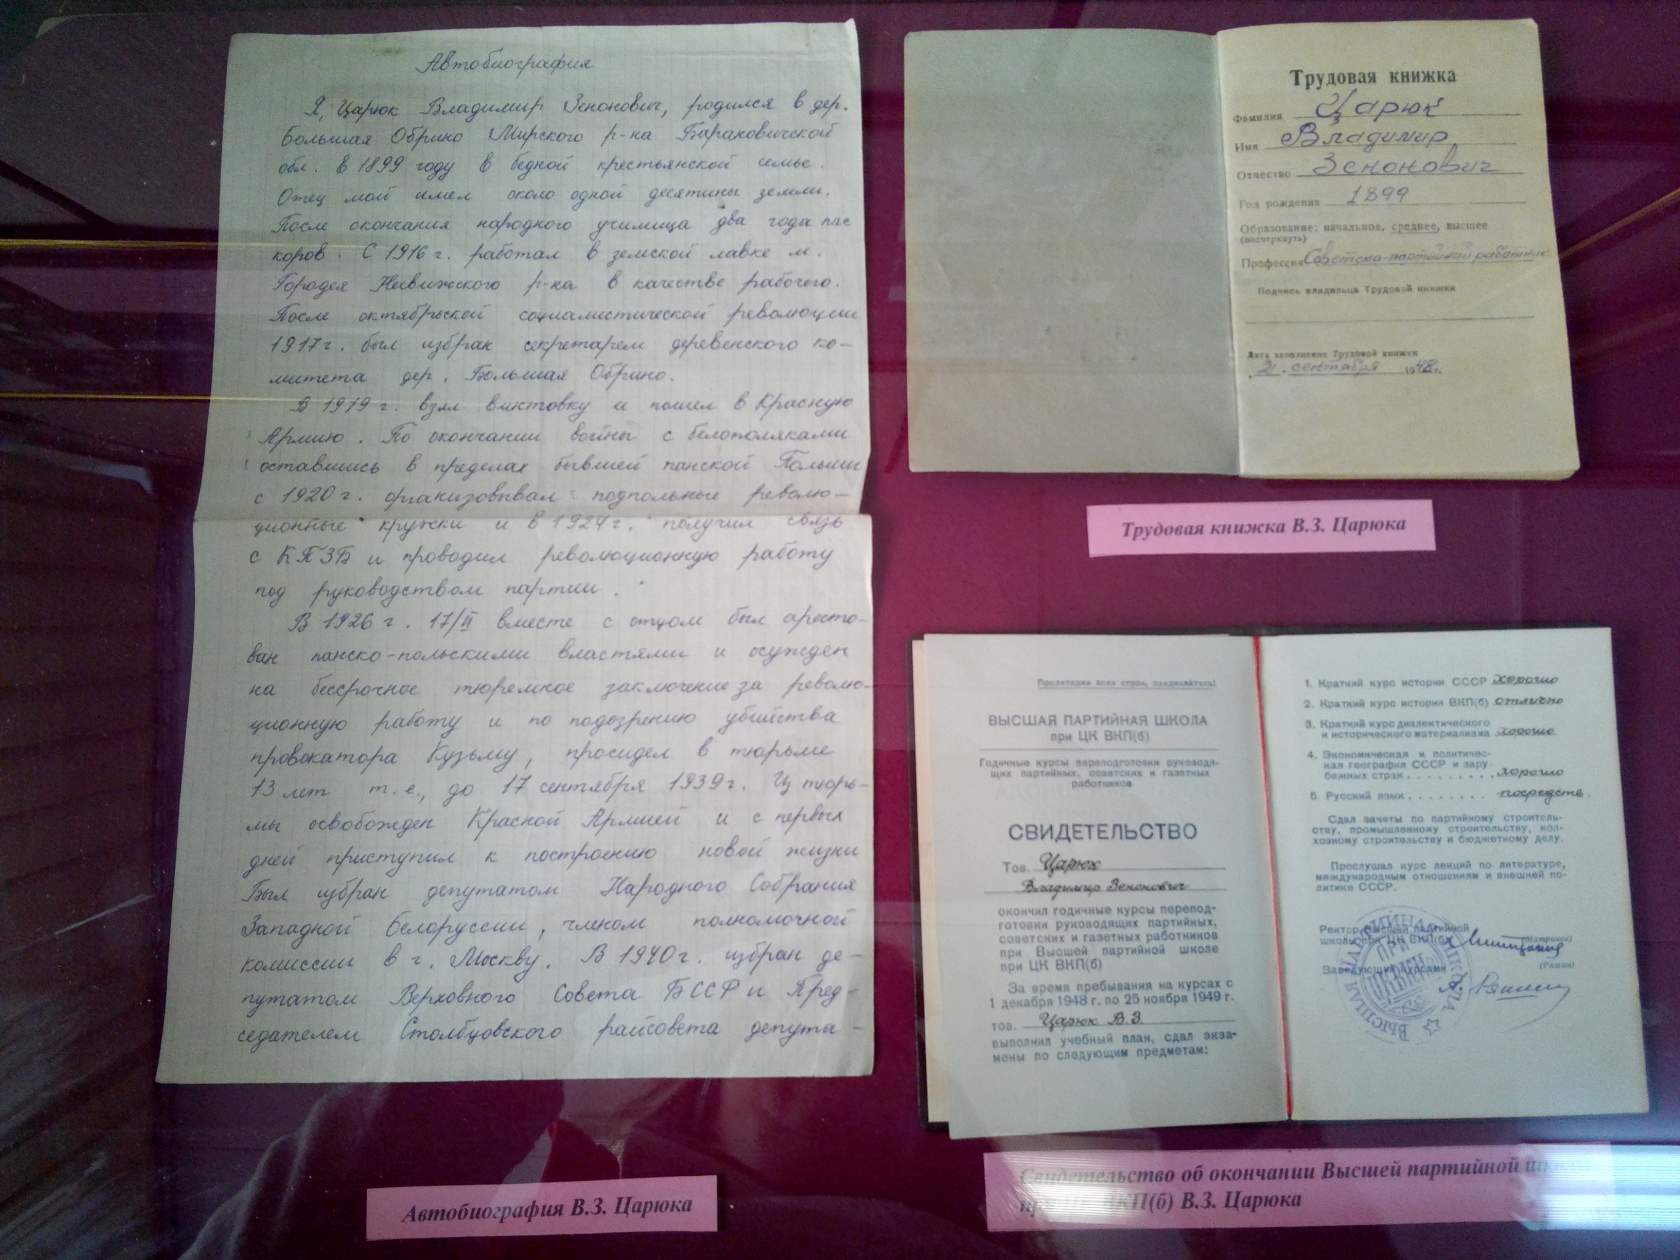 Автобиография
Я, Царюк Владимир Зенонович, родился в дер.
Большая Обрино Мирского р-на Барановичской
обл. в 1899 году в бедной крестьянской семье.
Отец мой имел около одной десятины земли.
После окончания народного училища два года пас
коров. С 1916 г. работал в земской лавке м.
Городея Несвижского р-на в качестве рабочего.
После октябрьской социалистической революции
1917 г. был избран секретарем деревенского ко-
митета дер. Большая Обрино.
В 1919 г. взял винтовку и пошел в Красную
Армию. По окончании войны с белополяками
оставшись в пределах бывшей панской Польши
с 1920 г. организовывал подпольные револю-
ционные кружки и в 1924 г. получил связь
с КПЗБ и проводил революционную работу
под руководством партии.
В 1926 г. 17/II вместе с отцом был аресто-
ван панско-польскими властями и осужден
на бессрочное тюремное заключение за револю-
ционную работу и по подозрению убийства
провокатора Кузьму, просидел в тюрьме
13 лет т.е., до 17 сентября 1939 г. Из тюрь-
мы освобожден Красной Армией и с первых
дней приступил к построению новой жизни
Был избран депутатом Народного Собрания
Западной Белоруссии, членом полномочной
комиссии в г. Москву. В 1940 г. избран де-
путатом Верховного Совета БССР и Пред-
седателем Столбцовского райсовета депута-
Автобиография В.З. Царюка
Трудовая книжка
Фамилия Царюк
Имя Владимир
Отчество Зенонович
Год рождения 1899
Образование: начальное, среднее, высшее
(подчеркнуть)
Профессия Советско-партийный работник
Подпись владельца Трудовой книжки
Дата заполнения Трудовой книжки
21 сентября 1948 г.
Трудовая книжка В.З. Царюка
Пролетарии всех стран, соединяйтесь!
ВЫСШАЯ ПАРТИЙНАЯ ШКОЛА
при ЦК ВКП(б)
Годичные курсы переподготовки руководя-
щих партийных, советских и газетных
работников
СВИДЕТЕЛЬСТВО
Тов. Царюк
Владимир Зенонович
окончил годичные курсы перепод-
готовки руководящих партийных,
советских и газетных работников
при Высшей партийной школе
при ЦК ВКП(б)
За время пребывания на курсах с
1 декабря 1948 г. по 25 ноября 1949 г.
тов. Царюк В.З.
выполнил учебный план, сдал экза-
мены по следующим предметам:
1. Краткий курс истории СССР хорошо
2. Краткий курс истории ВКП(б) отлично
3. Краткий курс диалектического
и исторического материализма хорошо
4. Экономическая и политичес-
кая география СССР и зару-
бежных стран . . . . . . . . . хорошо
5. Русский язык . . . . . . . . посредств.
Сдал зачеты по партийному строитель-
ству, промышленному строительству, кол-
хозному строительству и бюджетному делу.
Прослушал курс лекций по литературе,
международным отношениям и внешней по-
литике СССР.
Ректор Высшей партийной
школы при ЦК ВКП(б)
Заведующий курсами
ВЫСШАЯ ПАРТИЙНАЯ ШКОЛА
ПРИ
ЦК ВКП(б)
Свидетельство об окончании Высшей партийной школы
при ЦК ВКП(б) В.З. Царюка